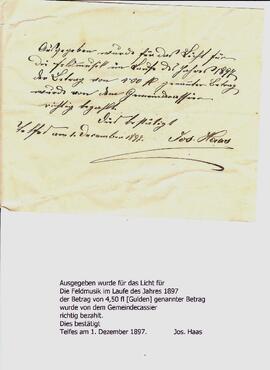 Ausgegeben wurde für das Licht für
die Feldmusik im Laufe des Jahres 1897
der Betrag von 4·50 fl genannter Betrag
wurde von dem Gemeindecassier
richtig bezahlt.
Dies bestätigt
Telfes am 1. December 1897. Jos. Haas
Ausgegeben wurde für das Licht für
Die Feldmusik im Laufe des Jahres 1897
der Betrag von 4,50 fl [Gulden] genannter Betrag
wurde von dem Gemeindecassier
richtig bezahlt.
Dies bestätigt
Telfes am 1. Dezember 1897. Jos. Haas